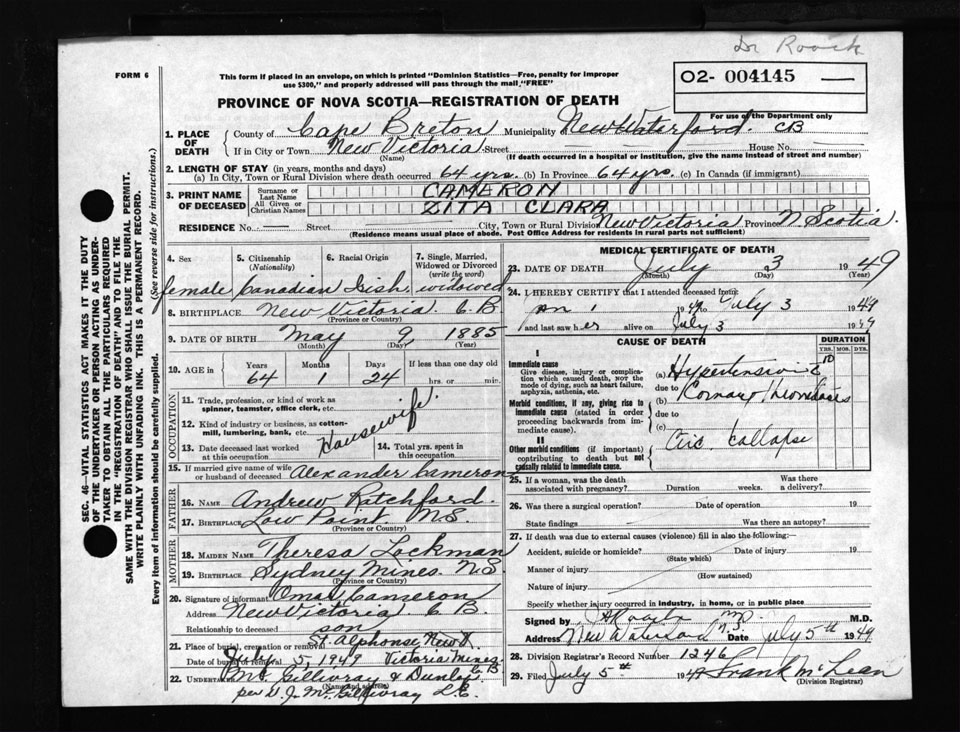 Dr Roach
FORM 6
This form if placed in an envelope, on which is printed "Dominion Statistics—Free, penalty for improper
use $300," and properly addressed will pass through the mail "FREE"
O2- 004145
For use of the Department only
PROVINCE OF NOVA SCOTIA—REGISTRATION OF DEATH
1. PLACE OF DEATH
County of Cape Breton Municipality New Waterford. CB
If in City or Town New Victoria Street House No.
(Name) (If death occurred in a hospital or institution, give the name instead of street and number)
2. LENGTH OF STAY (in years, months and days)
(a) In City, Town or Rural Division where death occurred 64 yrs. (b) In Province 64 yrs. (c) In Canada (if immigrant)
3. PRINT NAME OF DECEASED
Surname or Last Name CAMERON
All Given or Christian Names ZITA CLARA
RESIDENCE No. — Street City, Town or Rural Division New Victoria Province N. Scotia.
(Residence means usual place of abode. Post Office Address for residents in rural parts not sufficient)
4. Sex
5. Citizenship (Nationality)
6. Racial Origin
7. Single, Married, Widowed or Divorced (write the word)
female Canadian Irish. widowed
8. BIRTHPLACE New Victoria C.B
(Province or Country)
9. DATE OF BIRTH May 9 1885
(Month) (Day) (Year)
10. AGE in Years Months Days If less than one day old
64 1 24 hrs. or min.
OCCUPATION
11. Trade, profession, or kind of work as spinner, teamster, office clerk, etc.
12. Kind of industry or business, as cotton-mill, lumbering, bank, etc.
Housewife.
13. Date deceased last worked at this occupation
14. Total yrs. spent in this occupation
15. If married give name of wife or husband of deceased Alexander Cameron
FATHER
16. NAME Andrew Ratchford.
17. BIRTHPLACE Low Point. N.S.
(Province or Country)
MOTHER
18. MAIDEN NAME Theresa Lockman
19. BIRTHPLACE Sydney Mines. N.S
(Province or Country)
20. Signature of informant Omar Cameron
Address New Victoria C B.
Relationship to deceased son
21. Place of burial, cremation or removal St. Alphonse New
Date of burial or removal July 5, 1949 Victoria Mines
22. UNDERTAKER Mc Gillivray & Dunlop CB
(Name and address)
per J. Mc Gillivray L.E.
MEDICAL CERTIFICATE OF DEATH
23. DATE OF DEATH July 3 1949
(Month) (Day) (Year)
24. I HEREBY CERTIFY that I attended deceased from:
Jan 1 1949 to July 3 1949
and last saw her alive on July 3 1949
CAUSE OF DEATH
DURATION
YRS. MOS. DYS.
I
Immediate cause
Give disease, injury or complication which caused death, NOT the mode of dying, such as heart failure, asphyxia, asthenia, etc.
(a) Hypertension 10
due to
Morbid conditions, if any, giving rise to immediate cause (stated in order proceeding backwards from immediate cause).
(b) Coronary Thrombosis
due to
(c)
II
Other morbid conditions (if important) contributing to death but not causally related to immediate cause.
Circ. collapse
25. If a woman, was the death associated with pregnancy? Duration weeks. Was there a delivery?
26. Was there a surgical operation? Date of operation 19
State findings Was there an autopsy?
27. If death was due to external causes (violence) fill in also the following:
Accident, suicide or homicide? Date of injury 19
(State which)
Manner of injury
(How sustained)
Nature of injury
Specify whether injury occurred in industry, in home, or in public place
Signed by M.D.
Address New Waterford N.S. Date July 5th 1949
28. Division Registrar's Record Number 1246
29. Filed July 5th 1949 Frank McLean
(Division Registrar)
SEC. 46—VITAL STATISTICS ACT MAKES IT THE DUTY
OF THE UNDERTAKER OR PERSON ACTING AS UNDER-
TAKER TO OBTAIN ALL THE PARTICULARS REQUIRED
IN THE "REGISTRATION OF DEATH" AND TO FILE THE
SAME WITH THE DIVISION REGISTRAR WHO SHALL ISSUE THE BURIAL PERMIT.
WRITE PLAINLY WITH UNFADING INK. THIS IS A PERMANENT RECORD.
Every item of information should be carefully supplied. (See reverse side for instructions.)